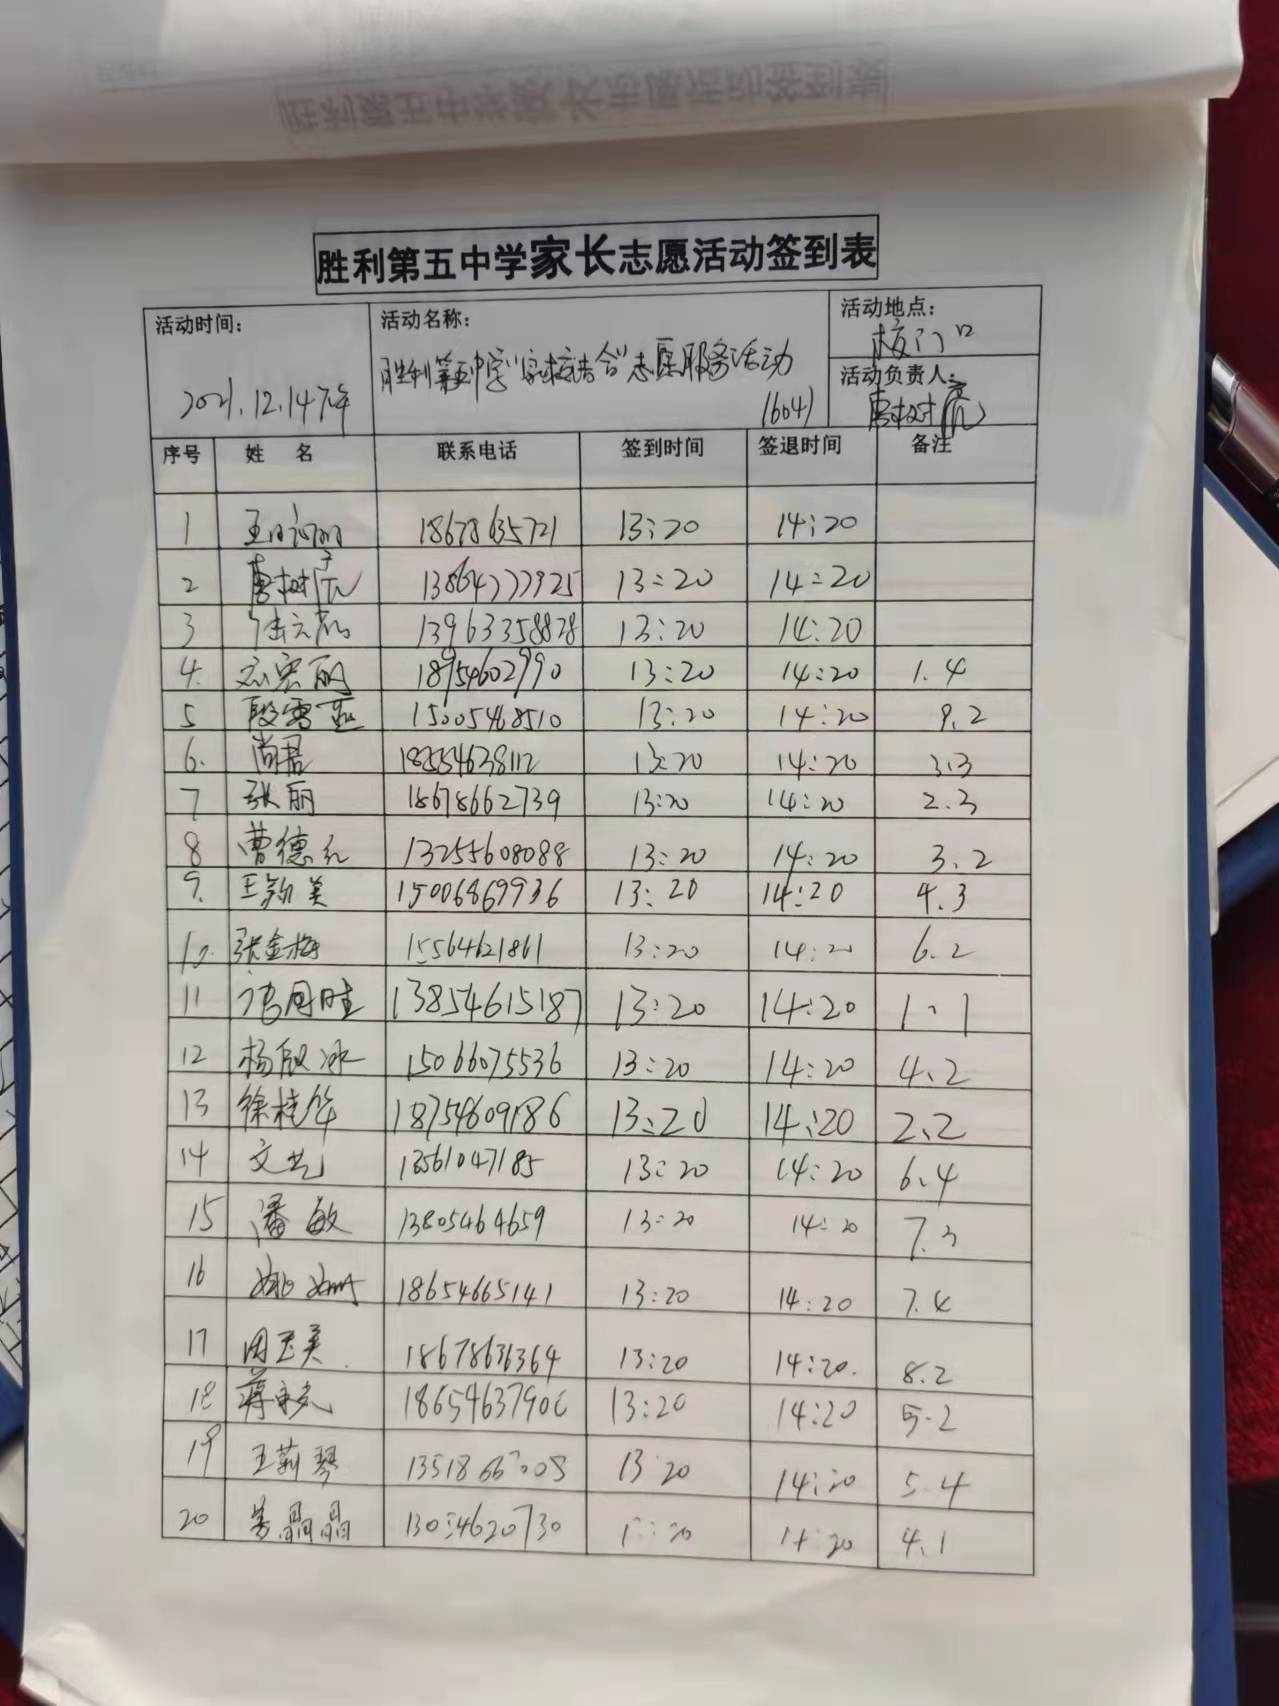 胜利第五中学家长志愿活动签到表
活动时间: 2021.12.14下午
活动名称: 胜利第五中学"家校结合"志愿服务活动 (604)
活动地点: 校门口
活动负责人: 唐树亮
序号 姓 名 联系电话 签到时间 签退时间 备注
1 18678635721 13:20 14:20
2 唐树亮 13864777925 13:20 14:20
3 13963358828 13:20 14:20
4. 宏丽 18954602990 13:20 14:20 1.4
5 段雪燕 15005468510 13:20 14:20 9.2
6. 尚君 18554638112 13:20 14:20 3.3
7 张丽 18678662739 13:20 14:20 2.3
8 曹德元 13255608088 13:20 14:20 3.2
9. 王美 15006869936 13:20 14:20 4.3
10. 张金梅 15564621861 13:20 14:20 6.2
11 13854615187 13:20 14:20 1、1
12 杨冰 15066075536 13:20 14:20 4、2
13 徐桂华 18754609186 13:20 14:20 2、2
14 文艺 13561047185 13:20 14:20 6、4
15 潘敏 13805464659 13:20 14:20 7.3
16 姚姗 18654665141 13:20 14:20 7.4
17 周玉美 18678636364 13:20 14:20. 8.2
18 蒋 13:20 14:20 5.2
19 王莉琴 13:20 14:20 5.4
20 晶晶 14:20 4.1